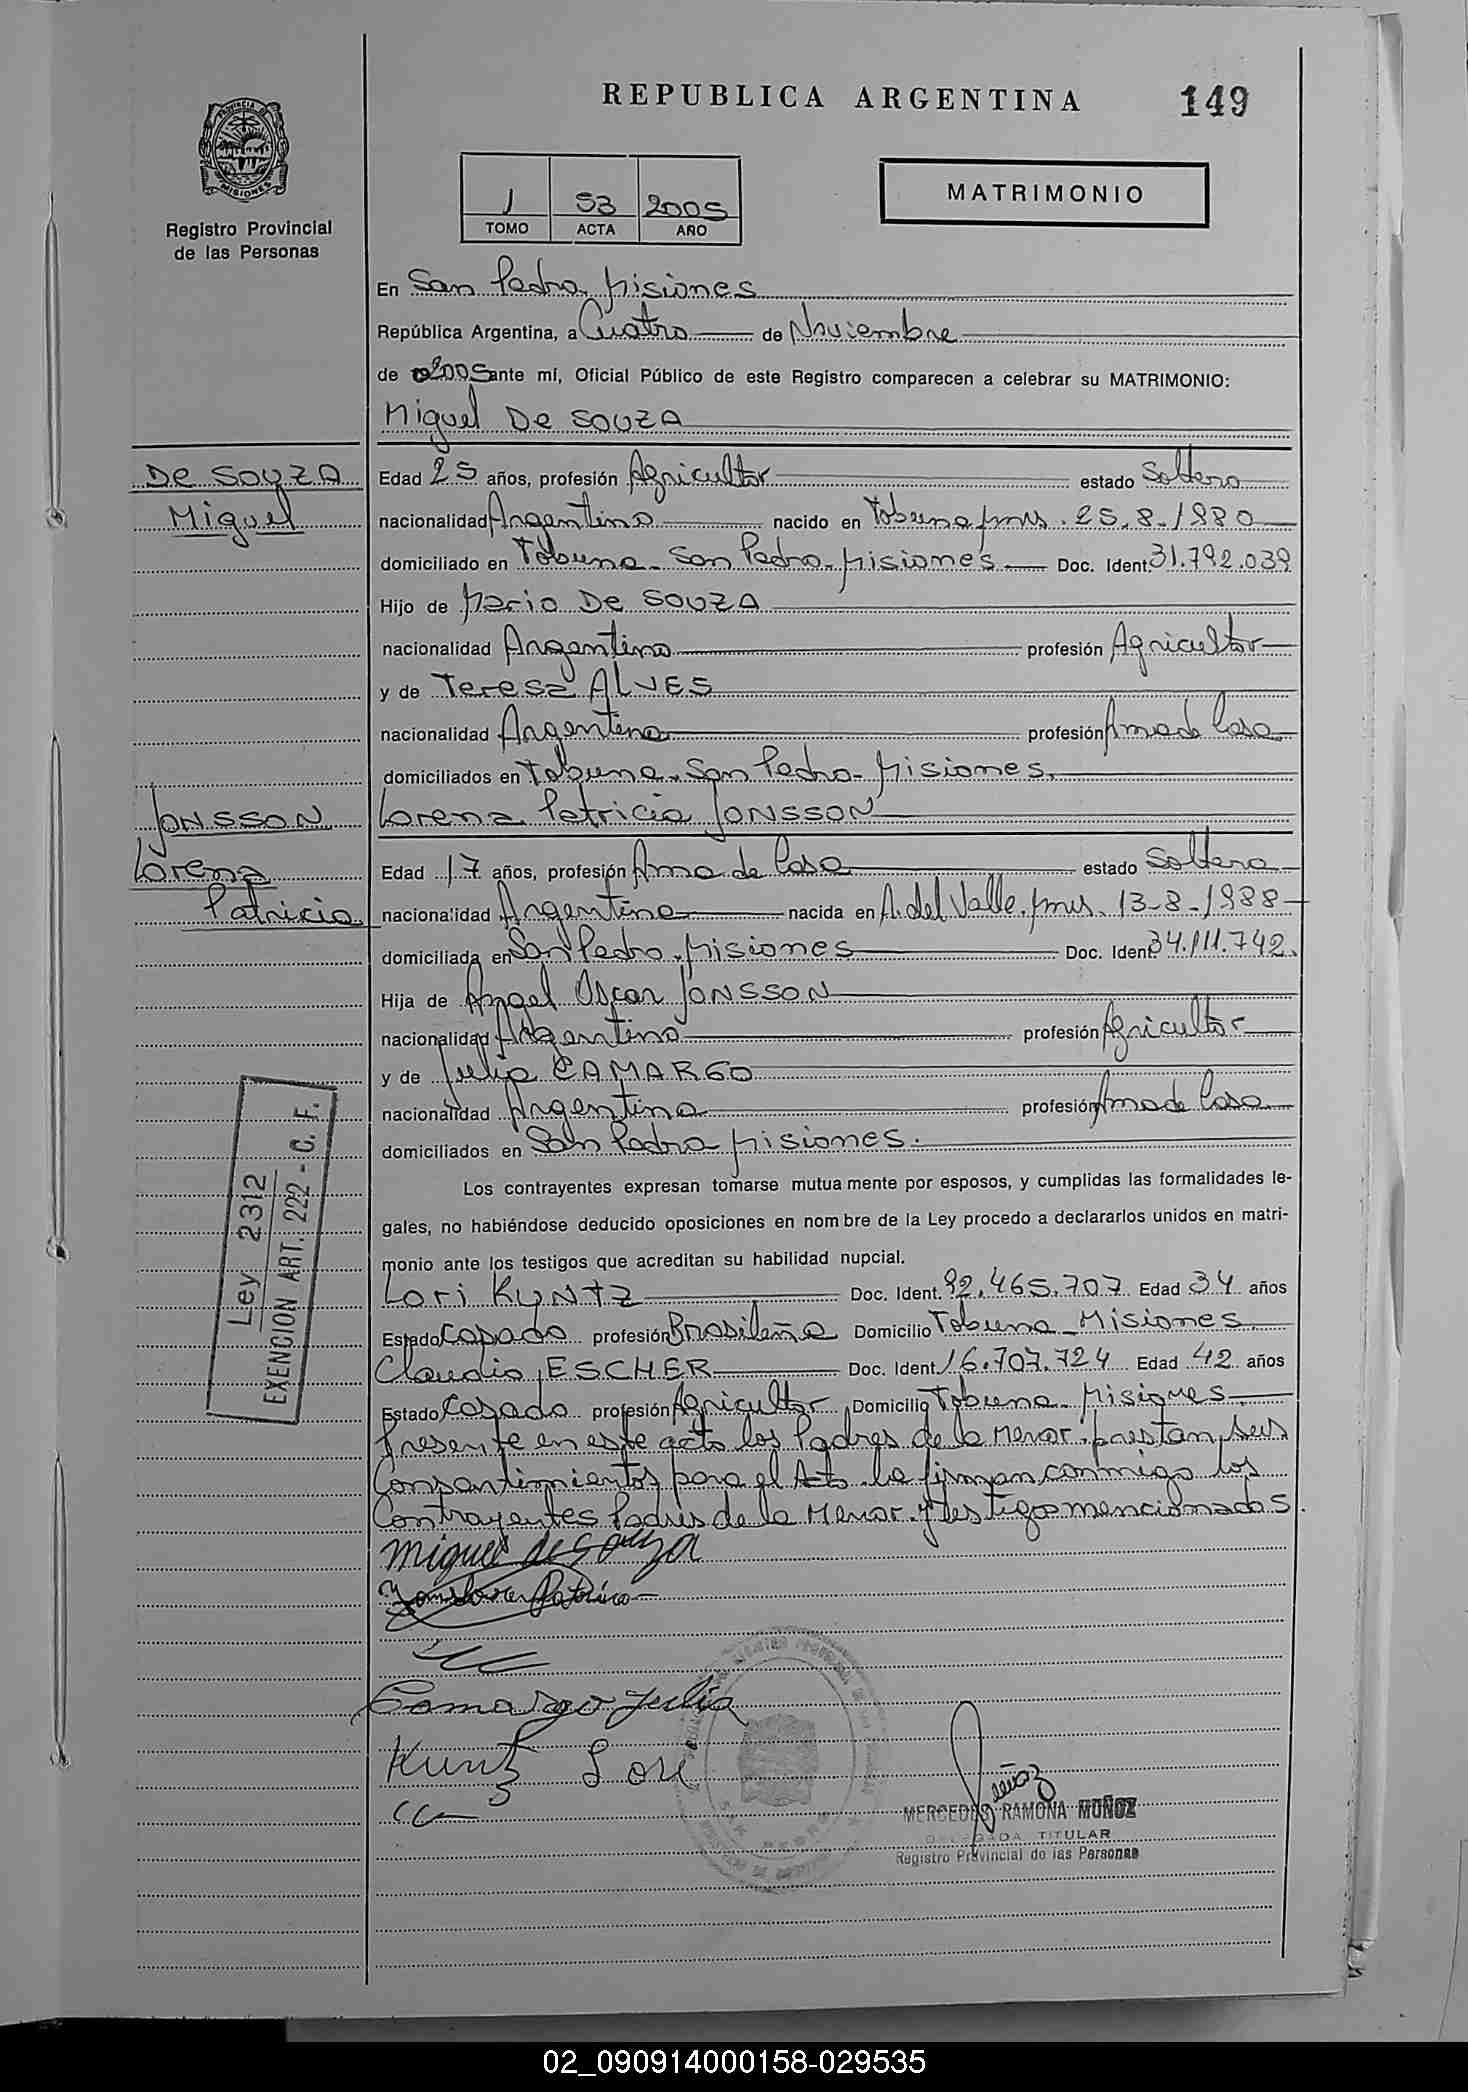 REPUBLICA ARGENTINA 149
PROVINCIA DE MISIONES
Registro Provincial
de las Personas
1 53 2005
TOMO ACTA AÑO
MATRIMONIO
En San Pedro Misiones
República Argentina, a Cuatro de Noviembre
de 2005 ante mí, Oficial Público de este Registro comparecen a celebrar su MATRIMONIO:
Miguel De SOUZA
De SOUZA
Miguel
Edad 25 años, profesión Agricultor estado Soltero
nacionalidad Argentino nacido en Tobuna mns. 25.8.1980
domiciliado en Tobuna San Pedro Misiones Doc. Ident. 31.792.039
Hijo de Mario De SOUZA
nacionalidad Argentino profesión Agricultor
y de Teresa ALVES
nacionalidad Argentina profesión Ama de Casa
domiciliados en Tobuna San Pedro Misiones.
JONSSON
Lorena
Patricia
Lorena Patricia JONSSON
Edad 17 años, profesión Ama de Casa estado Soltera
nacionalidad Argentina nacida en A. del Valle. mns. 13-8-1988
domiciliada en San Pedro Misiones Doc. Ident. 34.111.742.
Hija de Angel Oscar JONSSON
nacionalidad Argentino profesión Agricultor
y de Julia CAMARGO
nacionalidad Argentina profesión Ama de Casa
domiciliados en San Pedro Misiones.
Ley 2312
EXENCION ART. 222 - C. F.
Los contrayentes expresan tomarse mutua mente por esposos, y cumplidas las formalidades le-
gales, no habiéndose deducido oposiciones en nom bre de la Ley procedo a declararlos unidos en matri-
monio ante los testigos que acreditan su habilidad nupcial.
Lori KUNTZ Doc. Ident. 92.465.707 Edad 34 años
Estado Casado profesión Brasileña Domicilio Tobuna Misiones
Claudio ESCHER Doc. Ident. 16.707.724 Edad 42 años
Estado Casado profesión Agricultor Domicilio Tobuna Misiones
Presente en este acto los Padres de la Menor prestan sus
Consentimientos para el Acto la firman conmigo los
Contrayentes Padres de la Menor y testigos mencionados.
Miguel de Souza
Patricia
Camargo Julia
Kuntz Lori
Muñoz
MERCEDES RAMONA MUÑOZ
DELEGADA TITULAR
Registro Provincial de las Personas
02_090914000158-029535